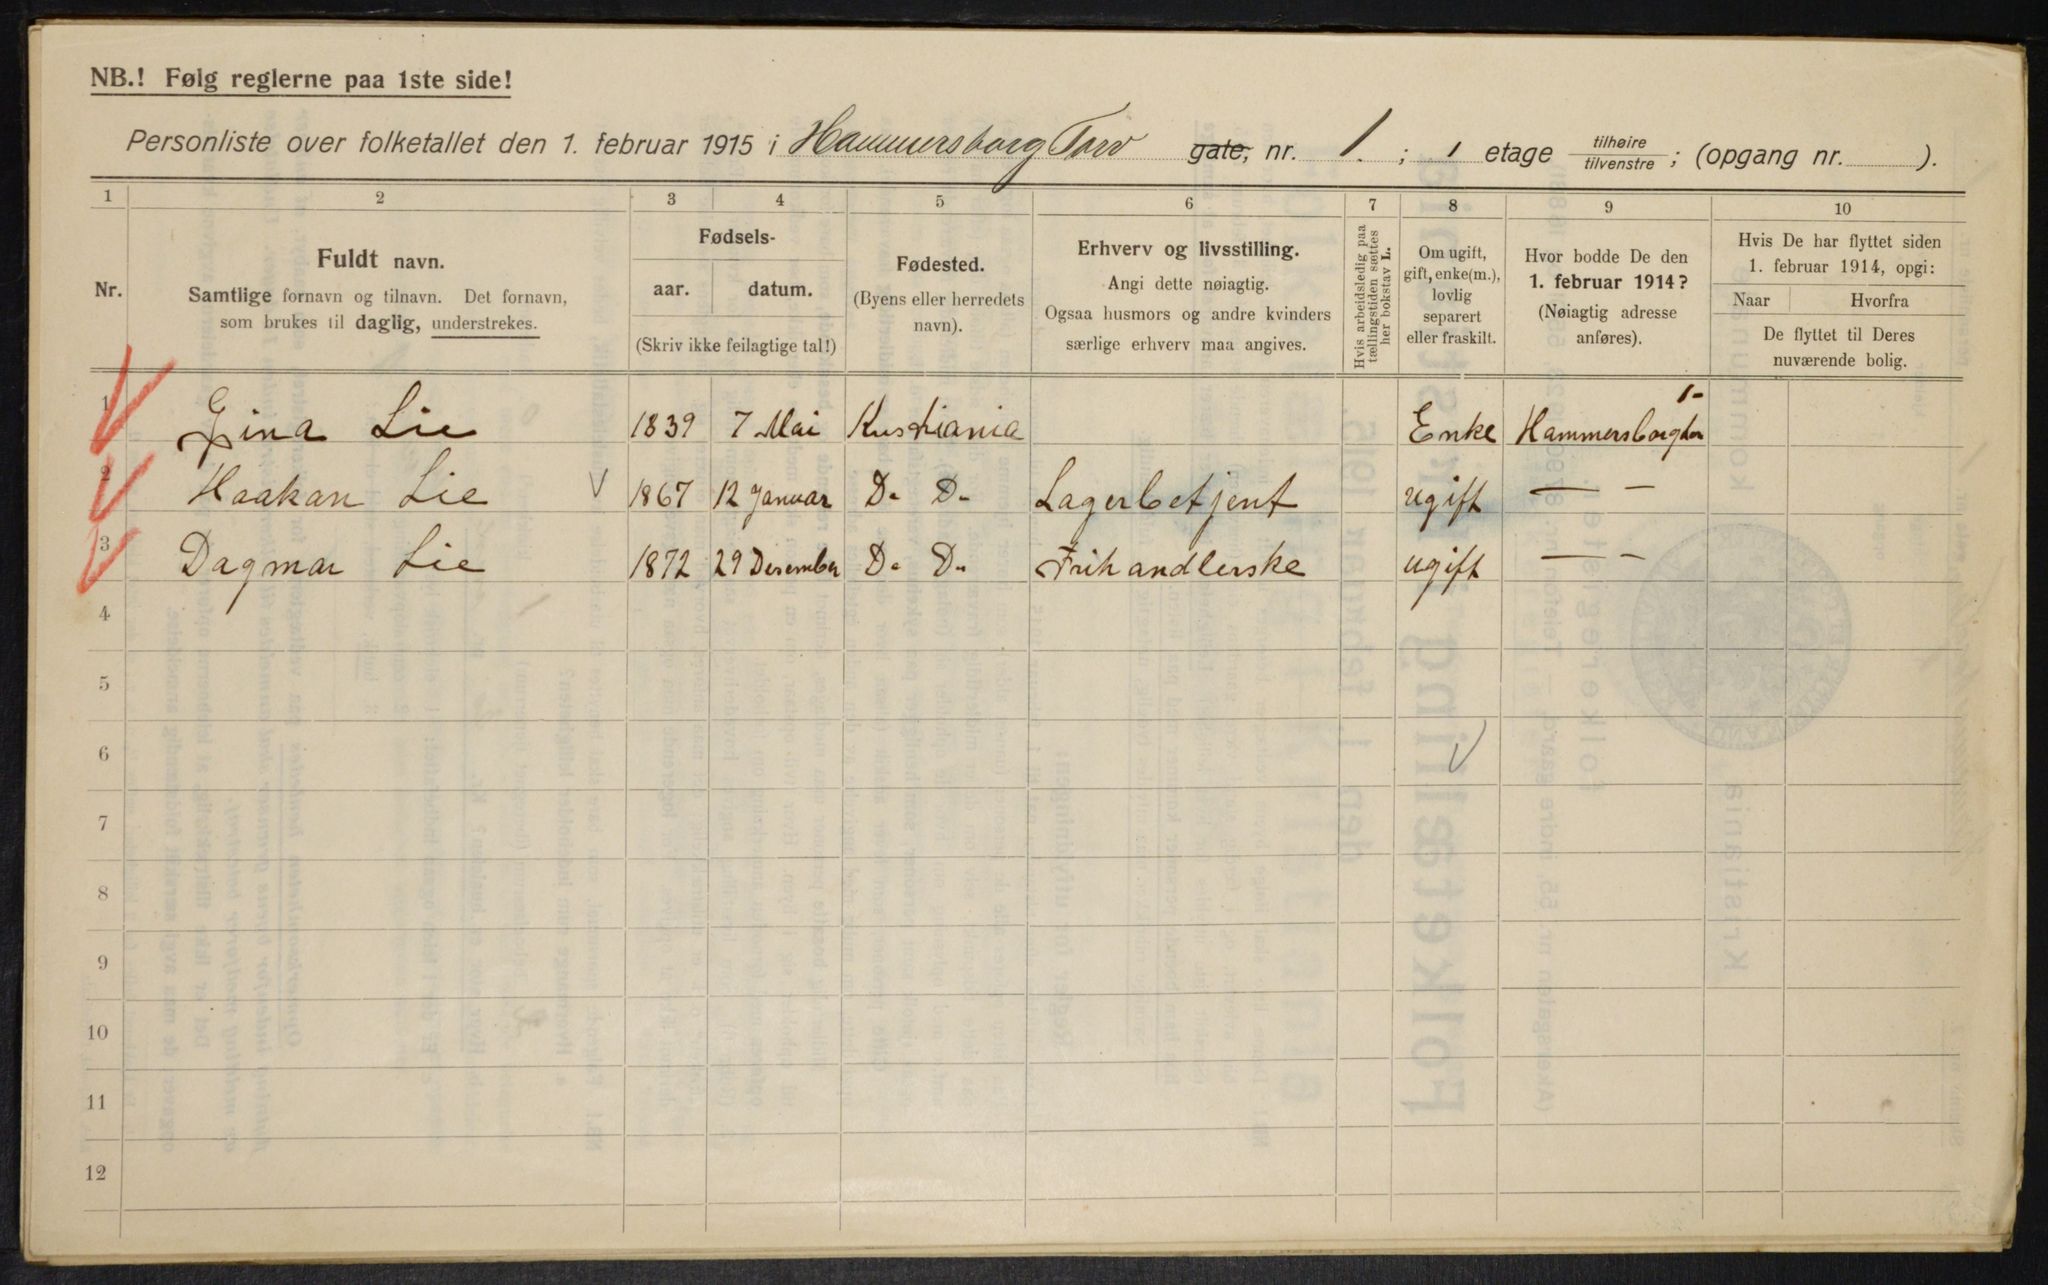 NB.! Følg reglerne paa 1ste side!
Personliste over folketallet den 1. februar 1915 i Hammersborg Torv gate, nr. 1. ; 1 etage tilhøire tilvenstre ; (opgang nr. ).
1 2 3 4 5 6 7 8 9 10
Nr.
Fuldt navn.
Samtlige fornavn og tilnavn. Det fornavn,
som brukes til daglig, understrekes.
Fødsels-
aar. datum.
(Skriv ikke feilagtige tal!)
Fødested.
(Byens eller herredets
navn).
Erhverv og livsstilling.
Angi dette nøiagtig.
Ogsaa husmors og andre kvinders
særlige erhverv maa angives.
Hvis arbeidsledig paa
tællingstiden sættes
her bokstav L.
Om ugift,
gift, enke(m.),
lovlig
separert
eller fraskilt.
Hvor bodde De den
1. februar 1914?
(Nøiagtig adresse
anføres).
Hvis De har flyttet siden
1. februar 1914, opgi:
Naar Hvorfra
De flyttet til Deres
nuværende bolig.
1 Gina Lie 1839 7 Mai Kristiania Enke Hammersborgtor 1-
2 Haakan Lie 1867 12 Januar D. D. Lagerbetjent ugift — —
3 Dagmar Lie 1872 29 Desember D. D. Frihandlerske ugift — —
4
5
6
7
8
9
10
11
12